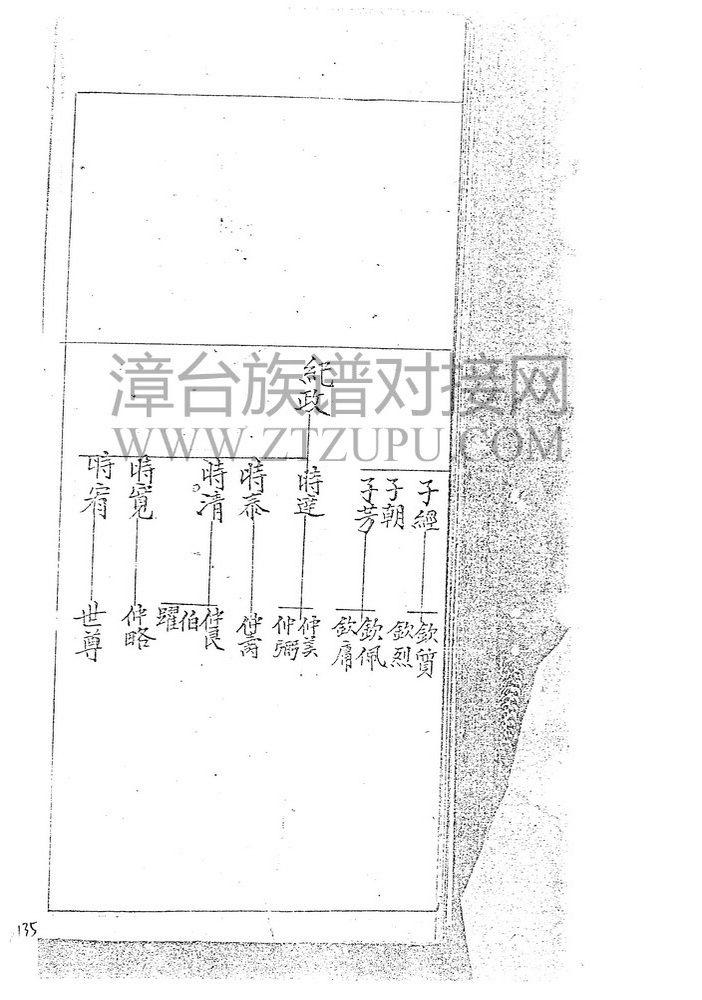 紀政
子經
子朝
子芳
時達
時泰
時清
時寬
時宥
欽質
欽烈
欽佩
欽庸
仲美
仲弼
仲喬
仲良
伯
躍
仲略
世尊
漳台族谱对接网
WWW.ZTZUPU.COM
135